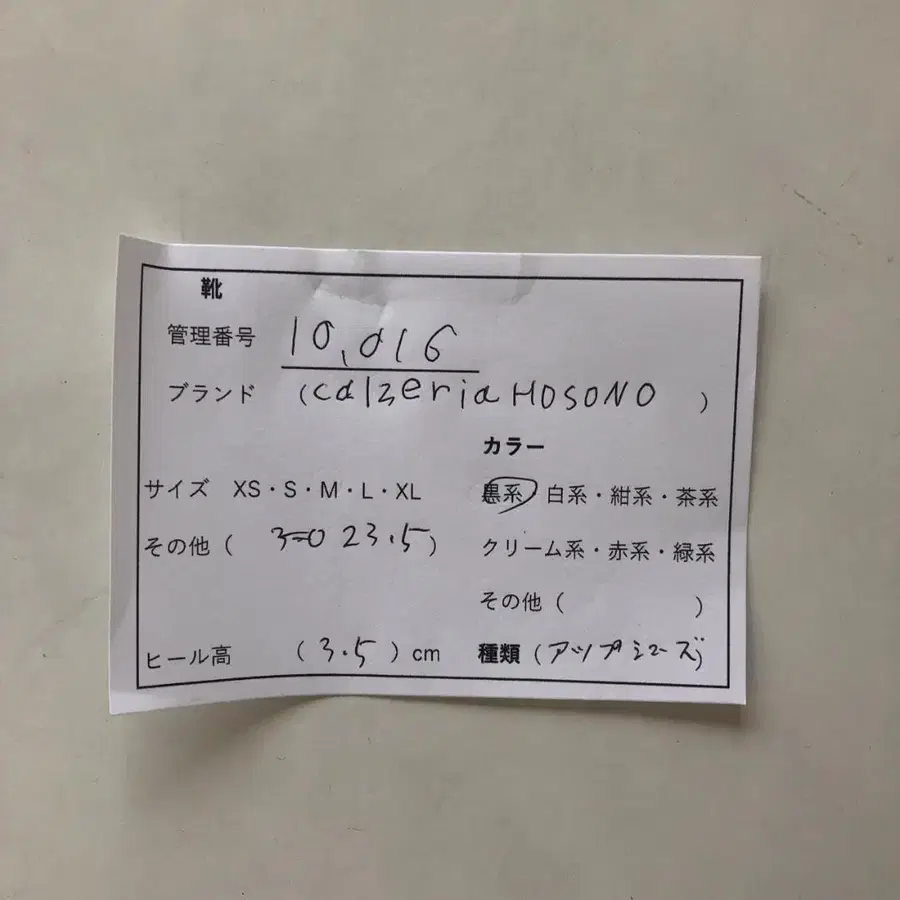 靴
管理番号 10,016
ブランド (calzeria HOSONO)
カラー
サイズ XS・S・M・L・XL 黒系・白系・紺系・茶系
その他( 23.5) クリーム系・赤系・緑系
その他( )
ヒール高 (3.5)cm 種類(アップシューズ)